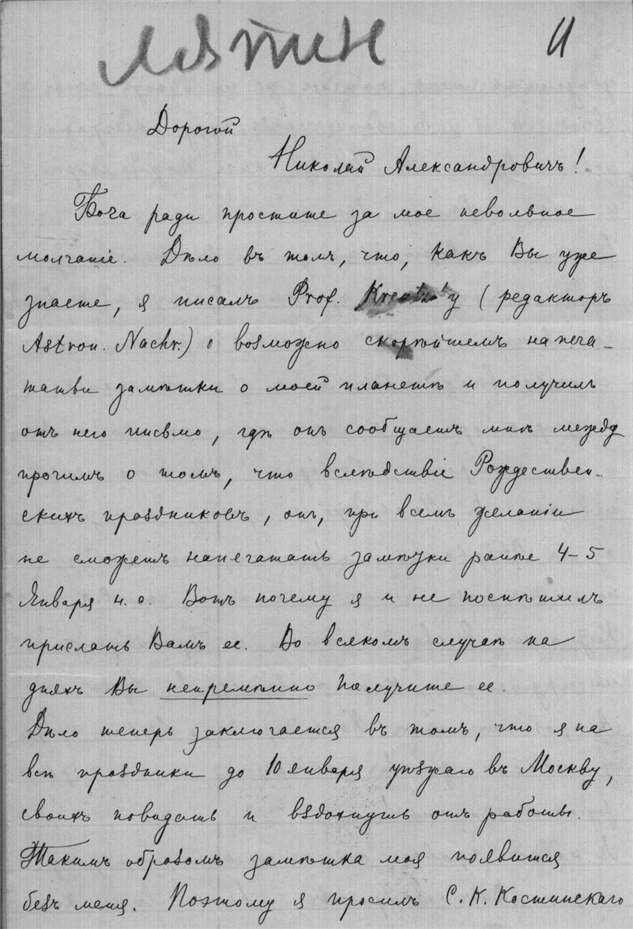 Лятин
11
Дорогой
Николай Александровичъ!
Бога ради простите за мое невольное
молчаніе. Дѣло въ томъ, что, какъ Вы уже
знаете, я писалъ Prof. Kreutz'у (редакторъ
Astron. Nachr.) о возможно скорѣйшемъ напеча-
таніи замѣтки о моей планетѣ и получилъ
отъ него письмо, гдѣ онъ сообщаетъ мнѣ между
прочимъ о томъ, что вслѣдствіе Рождествен-
скихъ праздниковъ, онъ, при всемъ желаніи
не сможетъ напечатать замѣтки ранѣе 4–5
Января н. с. Вотъ почему я и не поспѣшилъ
прислать Вамъ ее. Во всякомъ случаѣ на
дняхъ Вы непремѣнно получите ее.
Дѣло теперь заключается въ томъ, что я на
всѣ праздники до 10 января уѣзжаю въ Москву,
своихъ повидать и вздохнуть отъ работы.
Такимъ образомъ замѣтка моя появится
безъ меня. Поэтому я просилъ С. К. Костинскаго